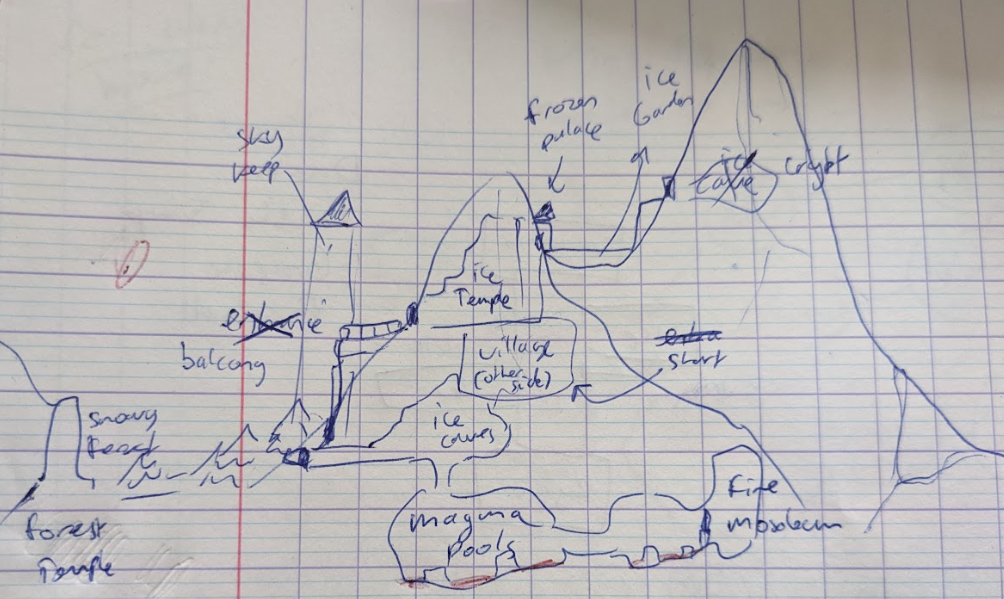 ice
Garden
frozen
palace
sky
keep
ice
Cave
ice
Temple
entrance
balcony
village
(other
side)
extra
start
snowy
forest
ice
caves
forest
Temple
magma
pools
fire
mosoleum